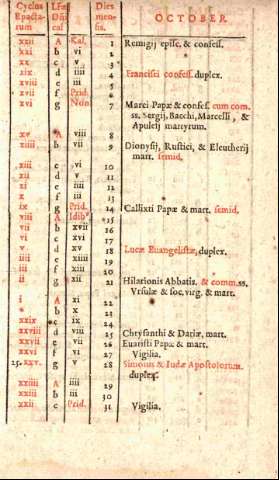 Cyclus Lræ Dies OCTOBER.
Epacta- Dñi men-
rum cal sis.
xxii A Kal. 1 Remigij episc. & confess.
xxi b vi 2
xx c v 3
xix d iiii 4 Francisci confess. duplex.
xviii e iii 5
xvii f Prid. 6
xvi g Non. 7 Marci Papæ & confess. cum com.
ss. Sergij, Bacchi, Marcelli, &
Apuleij martyrum.
xv A viii 8
xiiii b vii 9 Dionysij, Rustici, & Eleutherij
mart. semid.
xiii c vi 10
xii d v 11
xi e iiii 12
x f iii 13
ix g Prid. 14 Callixti Papæ & mart. semid.
viii A Idib 15
vii b xvii 16
vi c xvi 17
v d xv 18 Lucæ Euangelistæ, duplex.
iiii e xiiii 19
iii f xiii 20
ii g xii 21 Hilarionis Abbatis. & comm. ss.
Vrsulæ & soc. virg. & mart.
i A xi 22
* b x 23
xxix c ix 24
xxviii d viii 25 Chrysanthi & Dariæ, mart.
xxvii e vii 26 Euaristi Papæ & mart.
xxvi f vi 27 Vigilia.
25. xxv. g v 28 Simonis & Iudæ Apostolorum.
duplex.
xxiiii A iiii 29
xxiii b iii 30
xxii c Prid. 31 Vigilia.